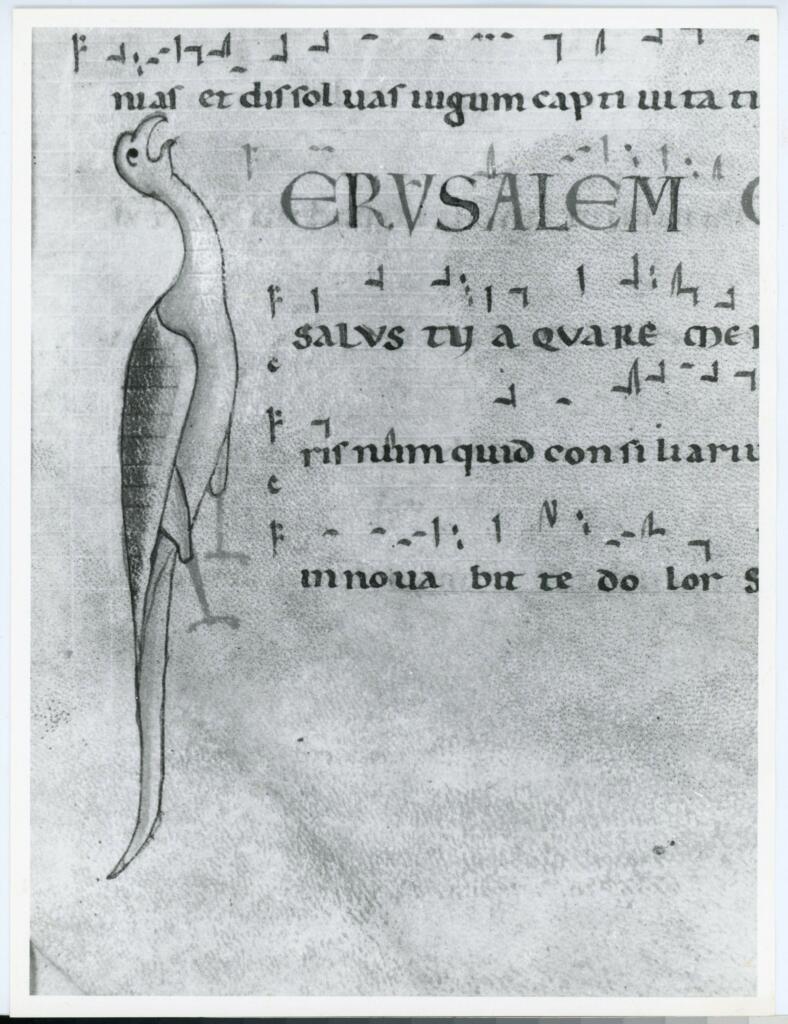 nias et dissol uas iugum capti uita ti
ERVSALEM
SALVS TU A QVARE ME
ris num quid con si liariu
in noua bit te do lor s